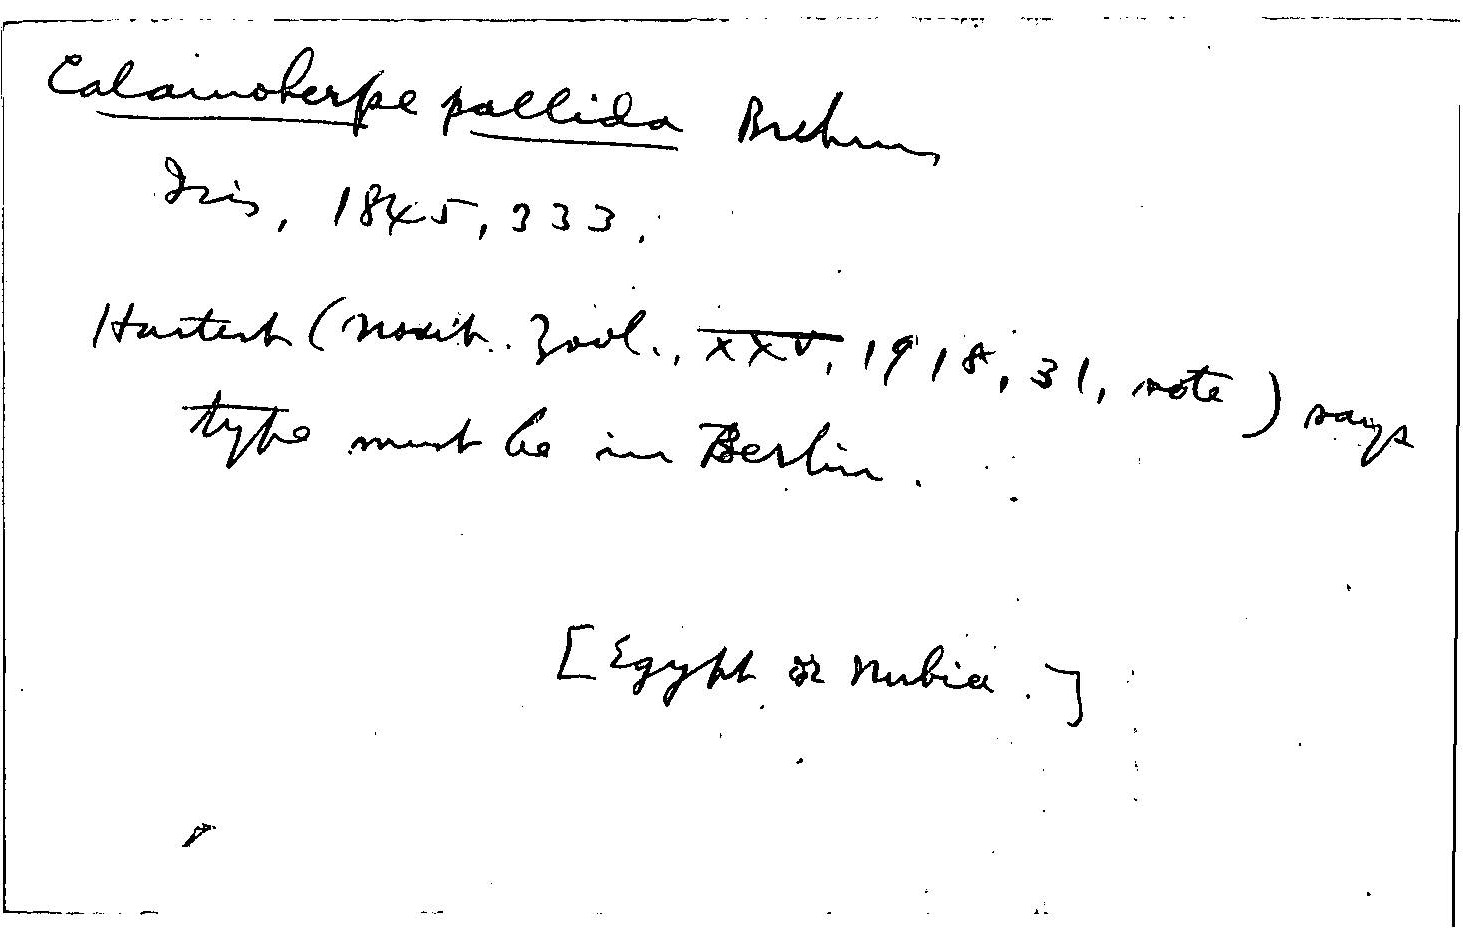 Calamoherpe pallida Brehm,
Isis, 1845, 333.
Hartert (Novit. Zool., XXV, 1918, 31, note) says
type must be in Berlin.
[Egypt or Nubia.]